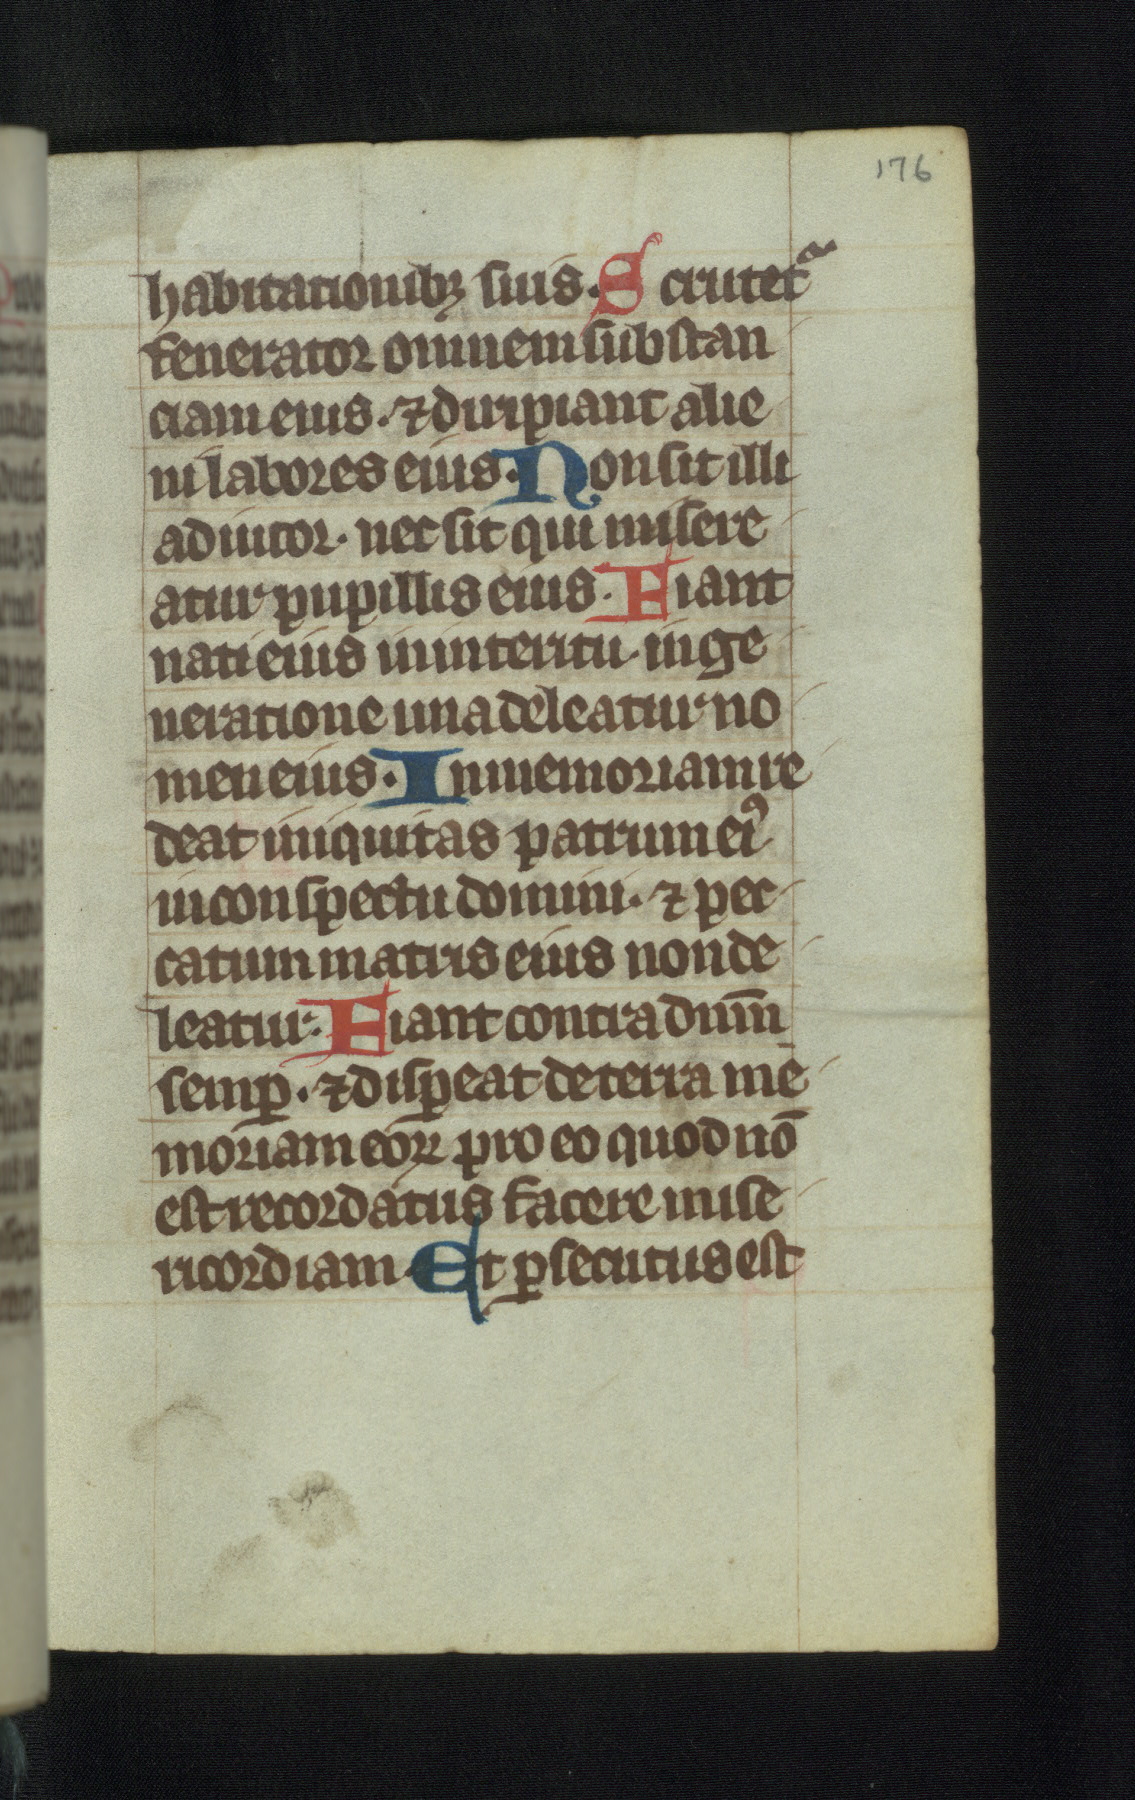 176
habitationibꝫ suis. Scrutet᷑
fenerator omnem substan
ciam eius. ⁊ diripiant alie
ni labores eius. Non sit illi
adiutor. nec sit qui misere
atur pupillis eius. Fiant
nati eius in interitu. in ge
neratione una deleatur no
men eius. In memoriam re
deat iniquitas patrum eiꝰ
in conspectu domini. ⁊ pec
catum matris eius non de
leatur. Fiant contra dnm̄
semꝑ. ⁊ disꝑeat de terra me
moriam eoꝝ pro eo quod nō
est recordatus facere mise
ricordiam. Et ꝑsecutus est